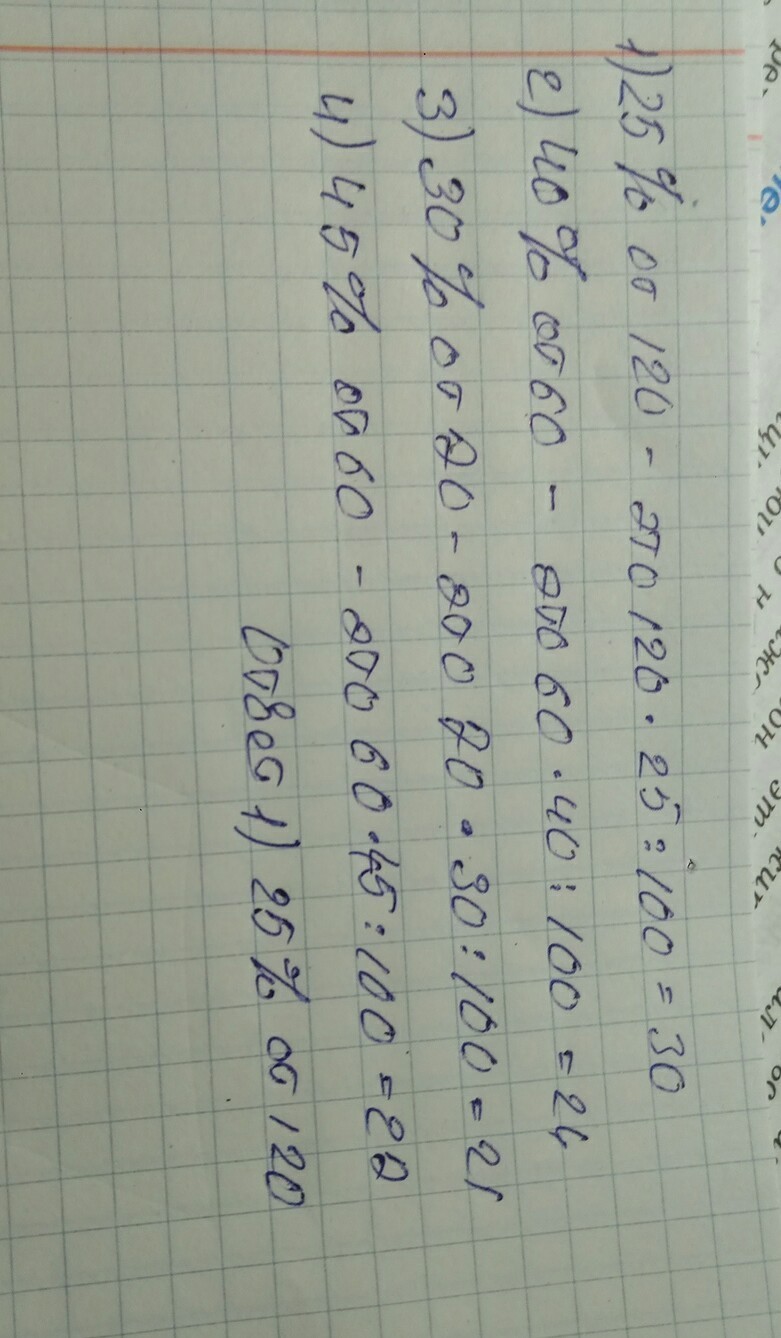 1) 25% от 120 - это 120 · 25 : 100 = 30
2) 40% от 60 - это 60 · 40 : 100 = 24
3) 30% от 70 - это 70 · 30 : 100 = 21
4) 45% от 60 - это 60 · 45 : 100 = 27
Ответ 1) 25% от 120